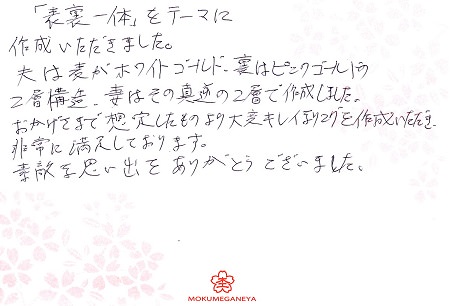 「表裏一体」をテーマに
作成いただきました。
夫は表がホワイトゴールド、裏はピンクゴールドの
2層構造、妻はその真逆の2層で作成しました。
おかげさまで想定したものより大変キレイなリングを作成いただき、
非常に満足しております。
素敵な思い出をありがとうございました。
MOKUMEGANEYA